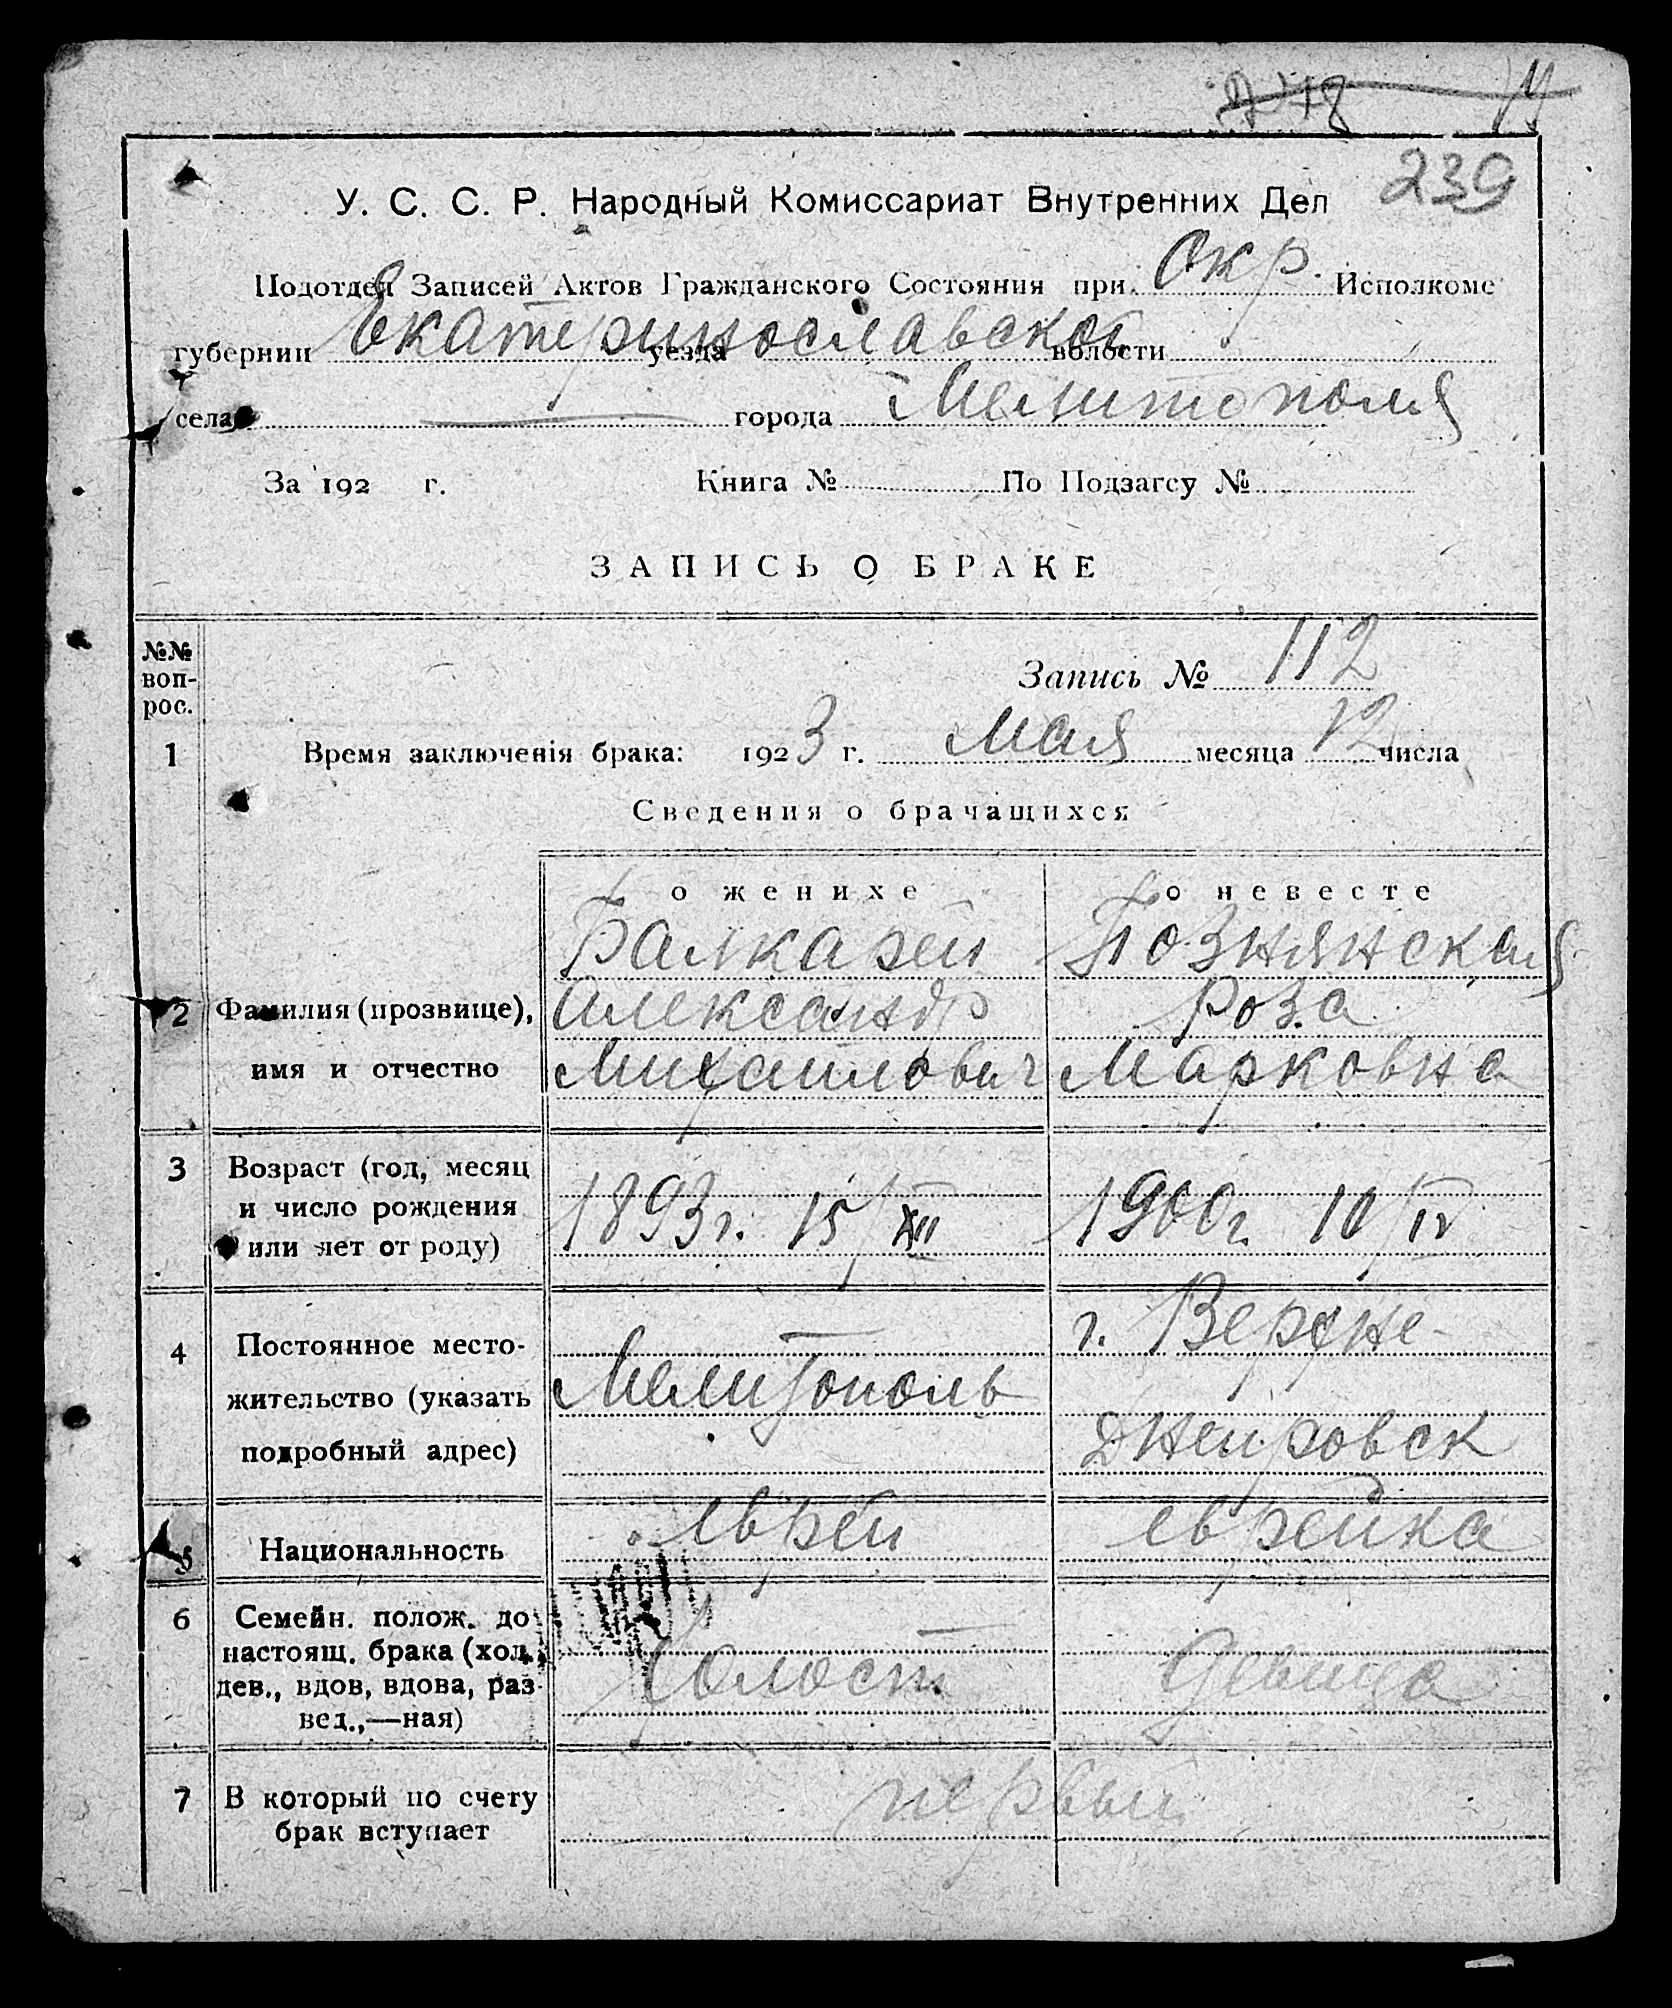 248
239
У. С. С. Р. Народный Комиссариат Внутренних Дел
Подотдел Записей Актов Гражданского Состояния при Окр. Исполкоме
губернии Екатеринославской уезда волости
села города Мелитополя
За 192 г. Книга № По Подзагсу №
ЗАПИСЬ О БРАКЕ
№№ воп-
рос.
Запись № 112
1 Время заключенія брака: 1923 г. Мая месяца 12 числа
Сведения о брачащихся
о женихе о невесте
Балкарей Познянская
2 Фамилия (прозвище), Александр Роза
имя и отчество Михайлович Марковна
3 Возраст (год, месяц
и число рождения 1893 г. 15/XII 1900 г. 10/IV
или лет от роду)
4 Постоянное место- г. Верхне-
жительство (указать Мелитополь
подробный адрес) Днепровск
5 Национальность еврей еврейка
6 Семейн. полож. до
настоящ. брака (хол.,
дев., вдов, вдова, раз- Холост девица
вед.,—ная)
7 В который по счету первый
брак вступает